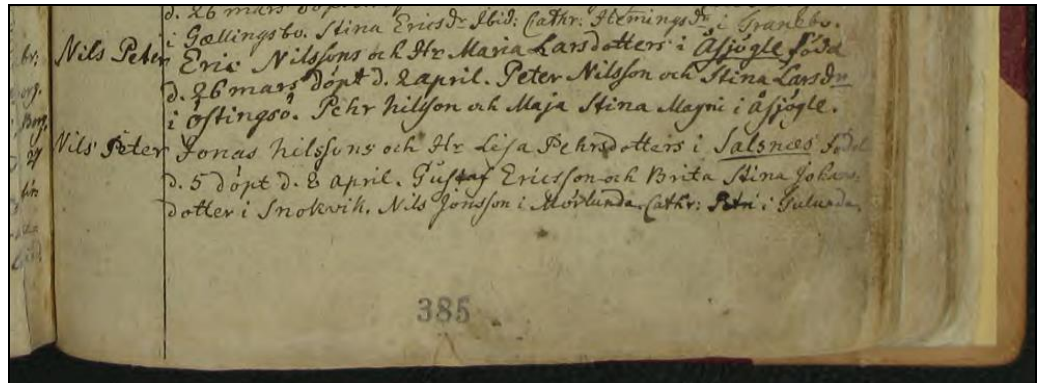 d. 26 mars
i Gællingsbo. Stina Ericsdr Ibid: Cathr: Hemingsdr i Tranebo.
Nils Peter Eric Nilssons och Hr Maria Larsdotters i Åsjögle född
d. 26 mars döpt d. 2 april. Peter Nilsson och Stina Larsdr
i Östingsö. Pehr Nilsson och Maja Stina Magni i Åsjögle.
Nils Peter Jonas Nilssons och Hr Lisa Pehrsdotters i Salsnæs född
d. 5 döpt d. 8 april. Gustaf Ericsson och Brita Stina Johans-
dotter i Snokvik. Nils Jonsson i Mörlunda. Cathr: Petri i
385